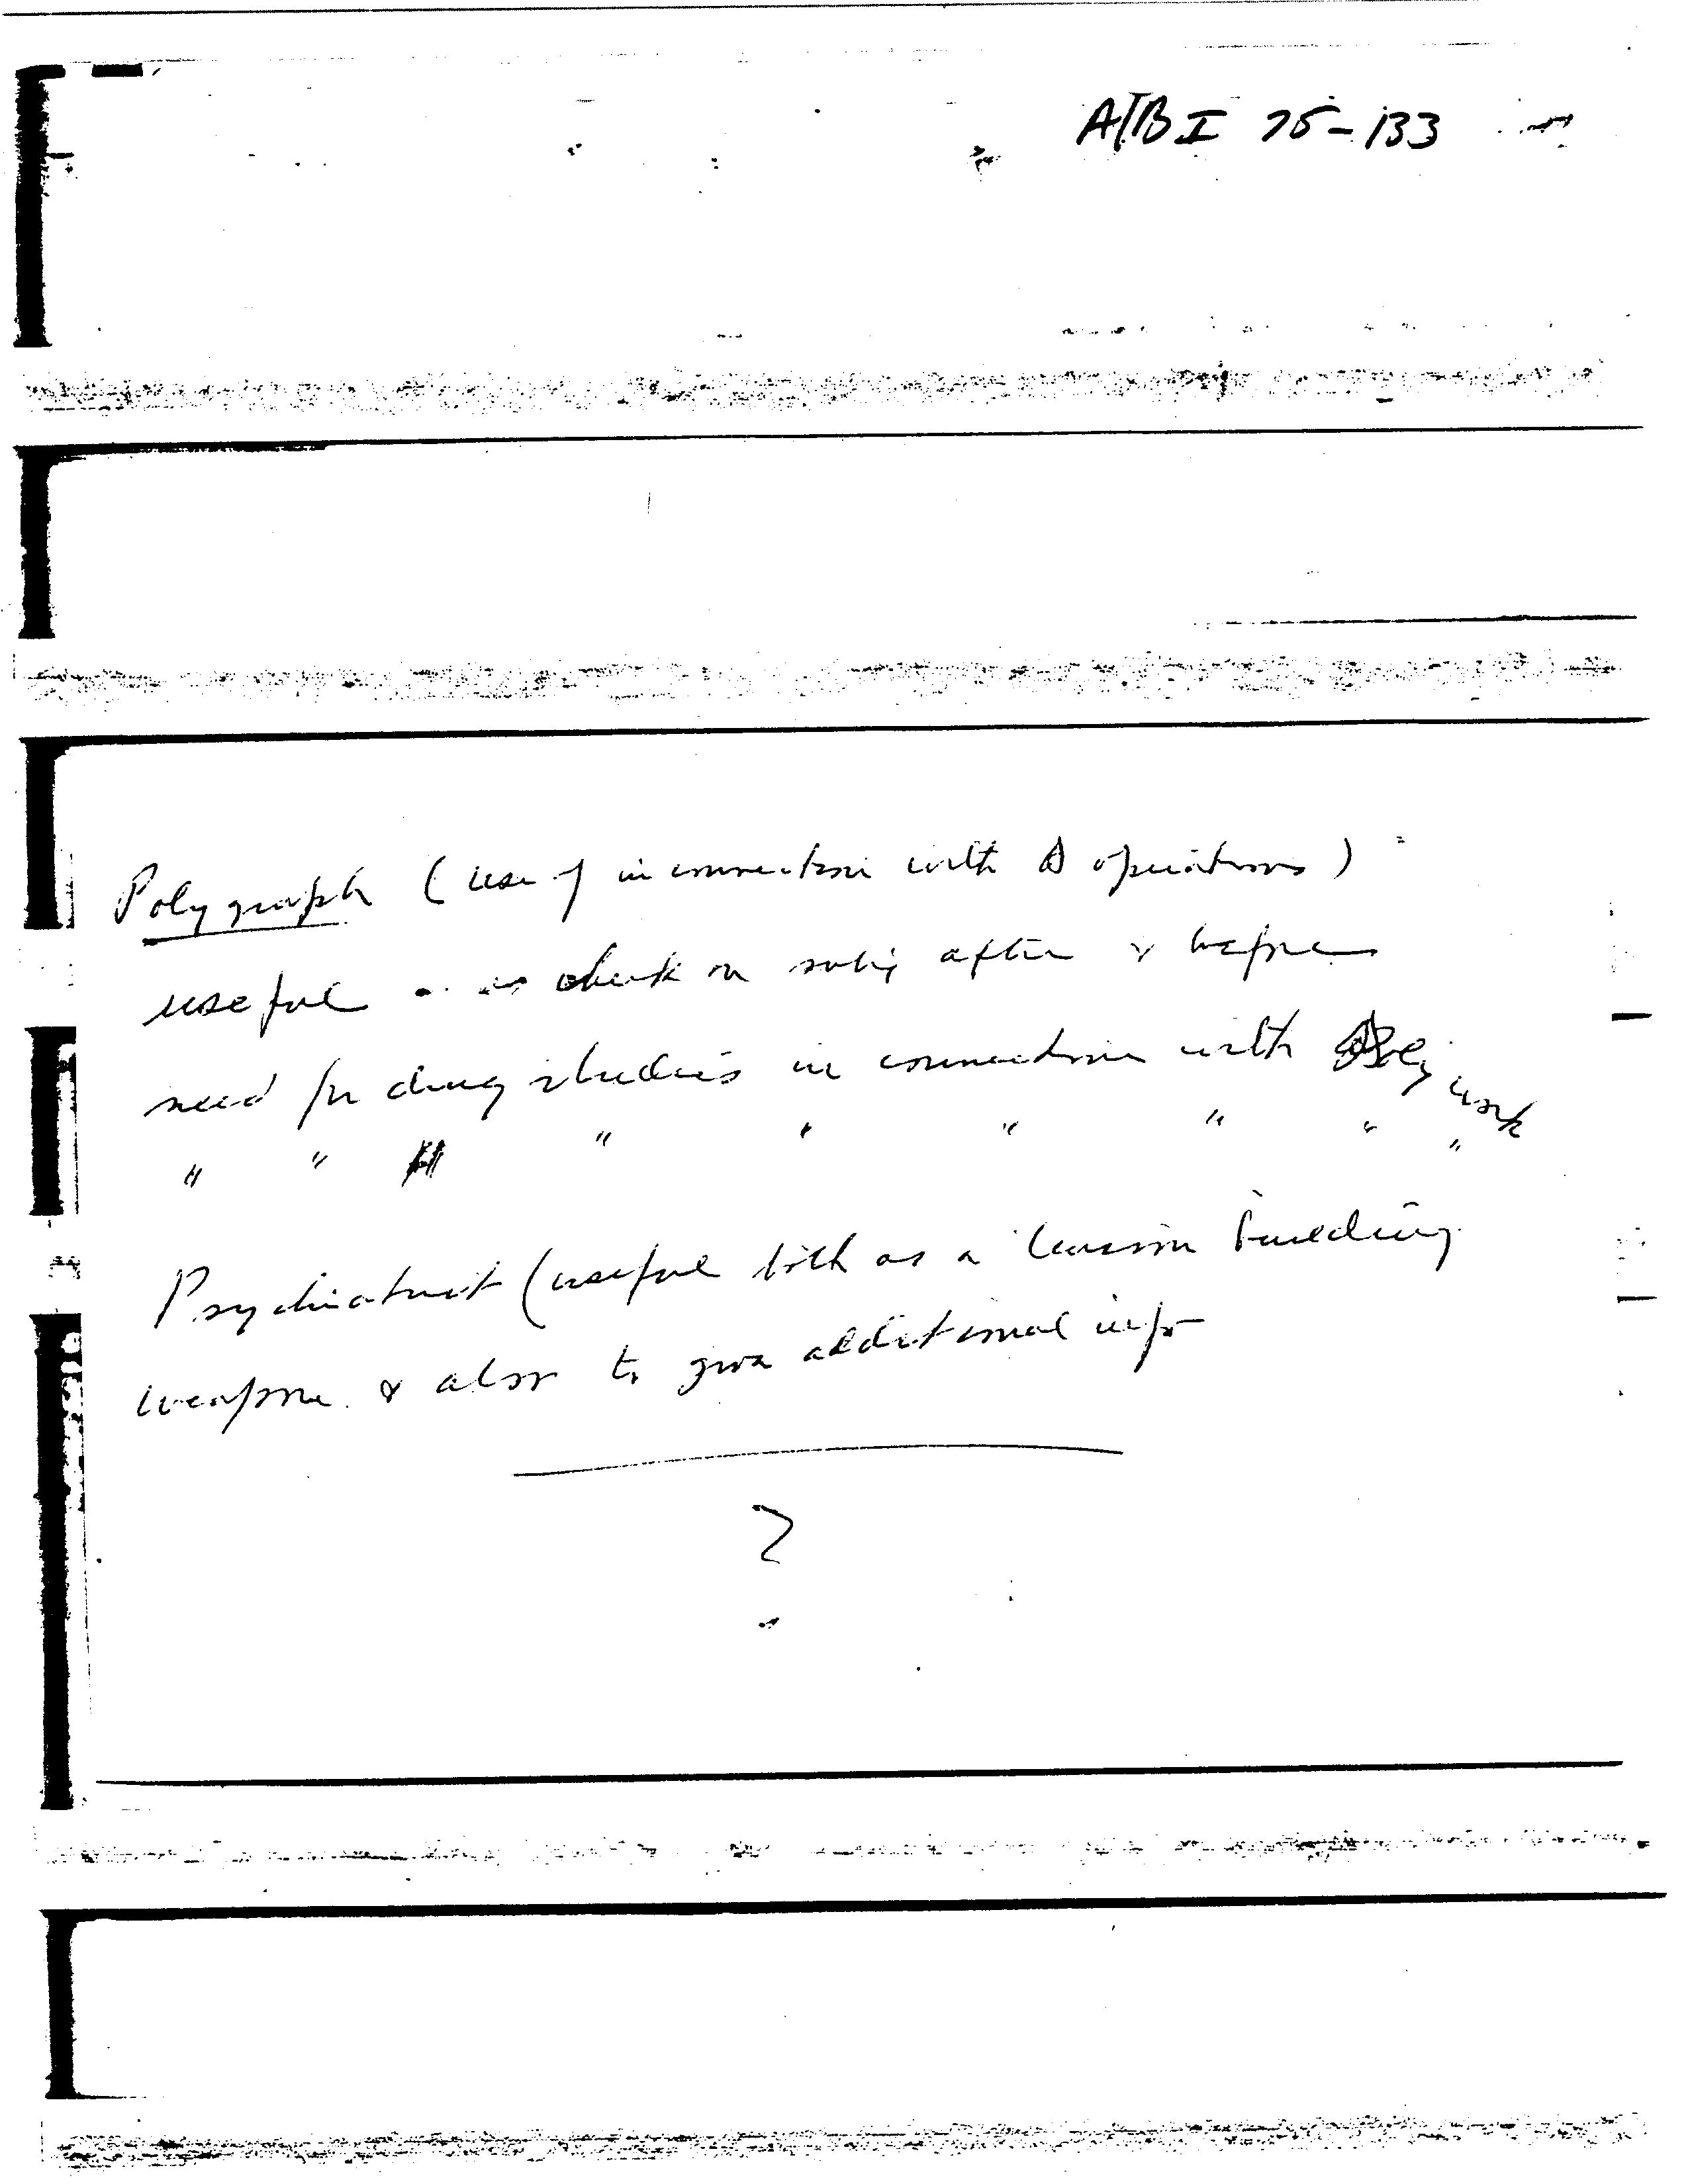 A/B I 75-133
Polygraph (use of in connection with A operations)
useful - as check on subj after & before
need for drug studies in connection with work
" " " " " " " "
Psychiatrist (useful both as a tension building
weapon & also to give additional info
?